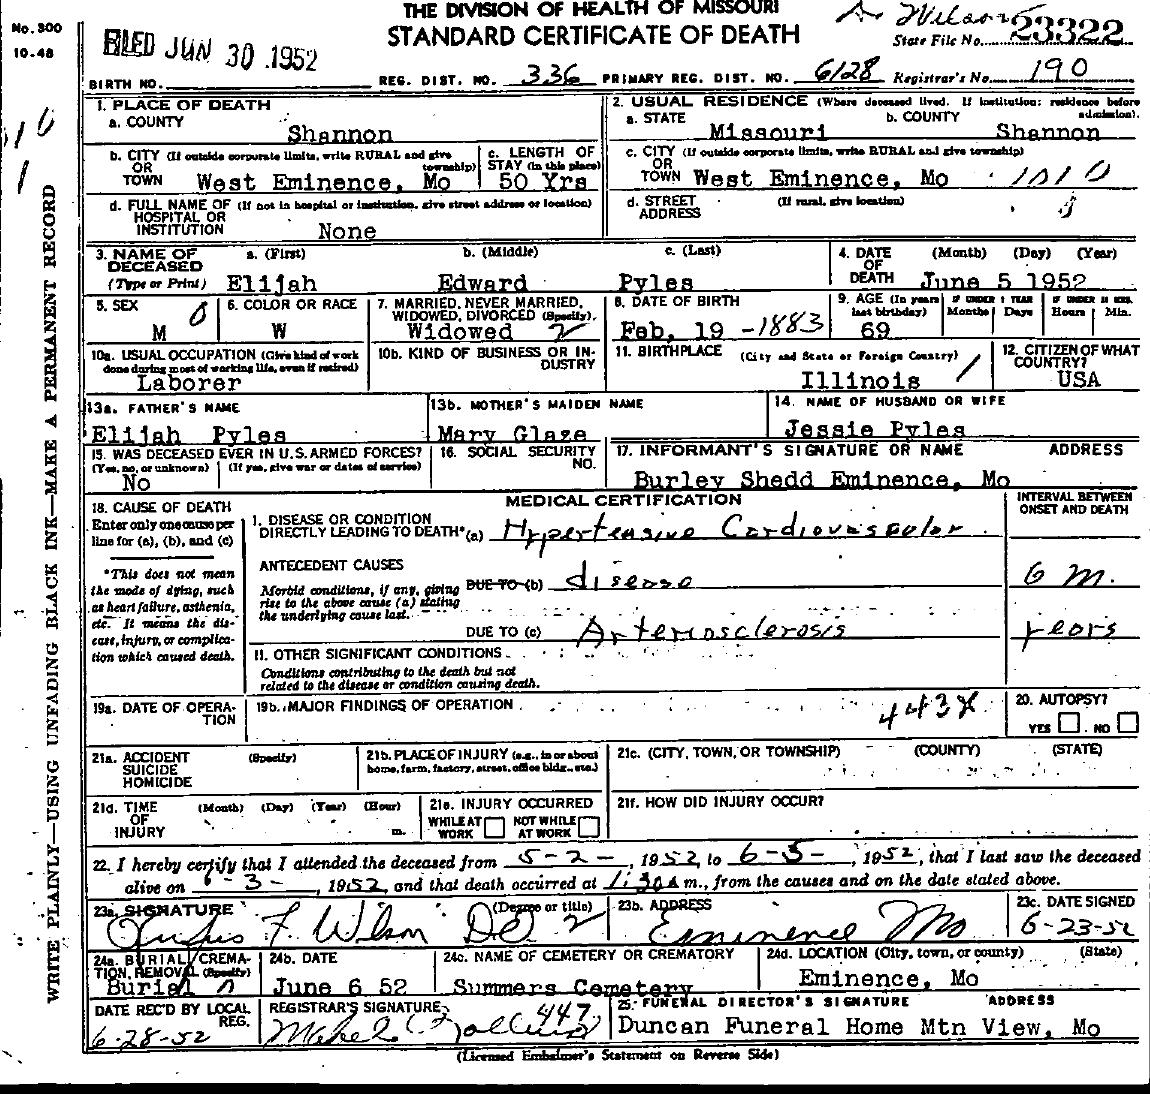 THE DIVISION OF HEALTH OF MISSOURI
STANDARD CERTIFICATE OF DEATH
No. 300
10-48
FILED JUN 30 1952
Wilson
State File No. 23322
BIRTH NO. REG. DIST. NO. 336 PRIMARY REG. DIST. NO. 6128 Registrar's No. 190
1. PLACE OF DEATH
a. COUNTY
Shannon
2. USUAL RESIDENCE (Where deceased lived. If institution: residence before admission).
a. STATE Missouri b. COUNTY Shannon
b. CITY (If outside corporate limits, write RURAL and give township)
OR
TOWN West Eminence, Mo
c. LENGTH OF
STAY (in this place)
50 Yrs
c. CITY (If outside corporate limits, write RURAL and give township)
OR
TOWN West Eminence, Mo 1010
d. FULL NAME OF (If not in hospital or institution, give street address or location)
HOSPITAL OR
INSTITUTION None
d. STREET (If rural, give location)
ADDRESS
3. NAME OF DECEASED
(Type or Print)
a. (First) b. (Middle) c. (Last)
Elijah Edward Pyles
4. DATE OF DEATH (Month) (Day) (Year)
June 5 1952
5. SEX
M
6. COLOR OR RACE
W
7. MARRIED, NEVER MARRIED,
WIDOWED, DIVORCED (Specify).
Widowed 2
8. DATE OF BIRTH
Feb, 19 -1883
9. AGE (In years last birthday) IF UNDER 1 YEAR Months Days IF UNDER 24 HRS. Hours Min.
69
10a. USUAL OCCUPATION (Give kind of work
done during most of working life, even if retired)
Laborer
10b. KIND OF BUSINESS OR INDUSTRY
11. BIRTHPLACE (City and State or Foreign Country)
Illinois
12. CITIZEN OF WHAT
COUNTRY?
USA
13a. FATHER'S NAME
Elijah Pyles
13b. MOTHER'S MAIDEN NAME
Mary Glaze
14. NAME OF HUSBAND OR WIFE
Jessie Pyles
15. WAS DECEASED EVER IN U.S. ARMED FORCES?
(Yes, no, or unknown) (If yes, give war or dates of service)
No
16. SOCIAL SECURITY
NO.
17. INFORMANT'S SIGNATURE OR NAME ADDRESS
Burley Shedd Eminence, Mo
18. CAUSE OF DEATH
Enter only one cause per
line for (a), (b), and (c)
*This does not mean
the mode of dying, such
as heart failure, asthenia,
etc. It means the dis-
ease, injury, or complica-
tion which caused death.
MEDICAL CERTIFICATION
INTERVAL BETWEEN
ONSET AND DEATH
I. DISEASE OR CONDITION
DIRECTLY LEADING TO DEATH*(a) Hypertensive Cardiovascular
ANTECEDENT CAUSES
Morbid conditions, if any, giving
rise to the above cause (a) stating
the underlying cause last.
DUE TO (b) disease 6 m.
DUE TO (c) Arteriosclerosis years
II. OTHER SIGNIFICANT CONDITIONS
Conditions contributing to the death but not
related to the disease or condition causing death.
19a. DATE OF OPERA-
TION
19b. MAJOR FINDINGS OF OPERATION
443X
20. AUTOPSY?
YES NO
21a. ACCIDENT (Specify)
SUICIDE
HOMICIDE
21b. PLACE OF INJURY (e.g., in or about
home, farm, factory, street, office bldg., etc.)
21c. (CITY, TOWN, OR TOWNSHIP) (COUNTY) (STATE)
21d. TIME (Month) (Day) (Year) (Hour)
OF
INJURY m.
21e. INJURY OCCURRED
WHILE AT WORK NOT WHILE AT WORK
21f. HOW DID INJURY OCCUR?
22. I hereby certify that I attended the deceased from 5-2-, 1952, to 6-5-, 1952, that I last saw the deceased
alive on 6-3-, 1952, and that death occurred at 1:30 a m., from the causes and on the date stated above.
23a. SIGNATURE (Degree or title)
Rufus F Wilson DO 2
23b. ADDRESS
Eminence Mo
23c. DATE SIGNED
6-23-52
24a. BURIAL, CREMA-
TION, REMOVAL (Specify)
Burial
24b. DATE
June 6 52
24c. NAME OF CEMETERY OR CREMATORY
Summers Cemetery
24d. LOCATION (City, town, or county) (State)
Eminence, Mo
DATE REC'D BY LOCAL
REG.
6-28-52
REGISTRAR'S SIGNATURE
447
25. FUNERAL DIRECTOR'S SIGNATURE ADDRESS
Duncan Funeral Home Mtn View, Mo
(Licensed Embalmer's Statement on Reverse Side)
WRITE PLAINLY—USING UNFADING BLACK INK—MAKE A PERMANENT RECORD